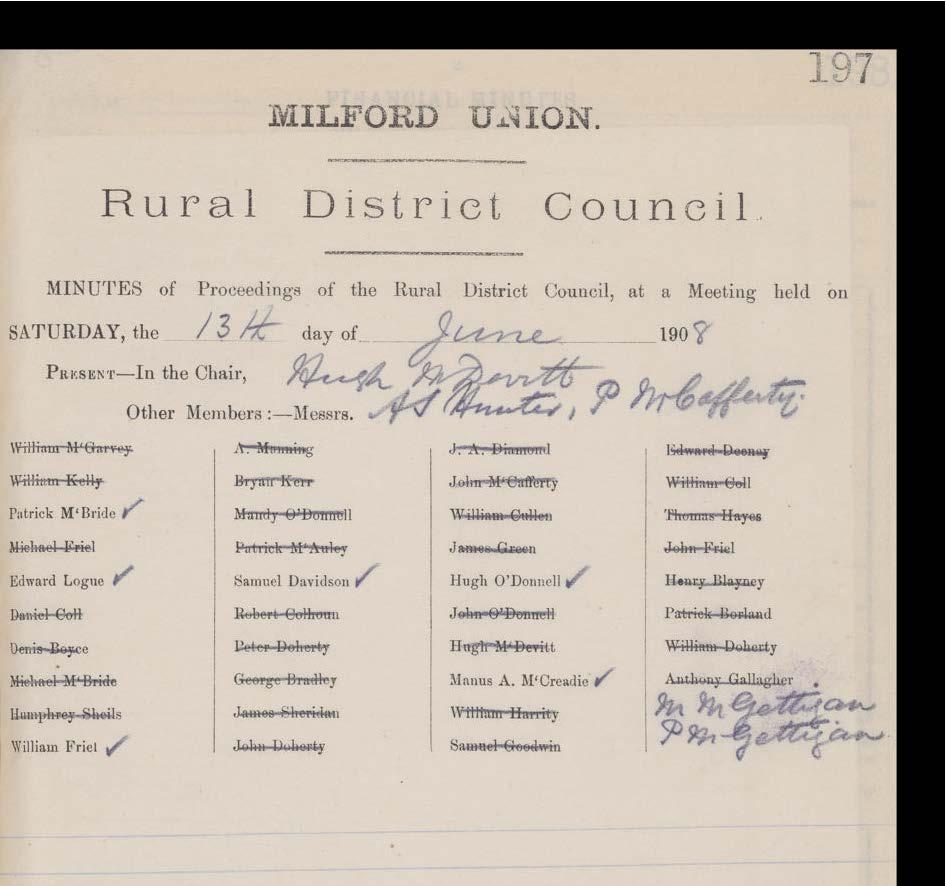 197
MILFORD UNION.
Rural District Council.
MINUTES of Proceedings of the Rural District Council, at a Meeting held on
SATURDAY, the 13th day of June 1908
PRESENT—In the Chair, Hugh McDevitt
Other Members:—Messrs. AS Hunter, P McCafferty.
William M‘Garvey A. Manning J. A. Diamond Edward Deeney
William Kelly Bryan Kerr John M‘Cafferty William Coll
Patrick M‘Bride ✓ Mandy O’Donnell William Cullen Thomas Hayes
Michael Friel Patrick M‘Auley James Green John Friel
Edward Logue ✓ Samuel Davidson ✓ Hugh O’Donnell ✓ Henry Blayney
Daniel Coll Robert Colhoun John O’Donnell Patrick Borland
Denis Boyce Peter Doherty Hugh M‘Devitt William Doherty
Michael M‘Bride George Bradley Manus A. M‘Creadie ✓ Anthony Gallagher
Humphrey Sheils James Sheridan William Harrity M McGettigan
William Friel ✓ John Doherty Samuel Goodwin P McGettigan